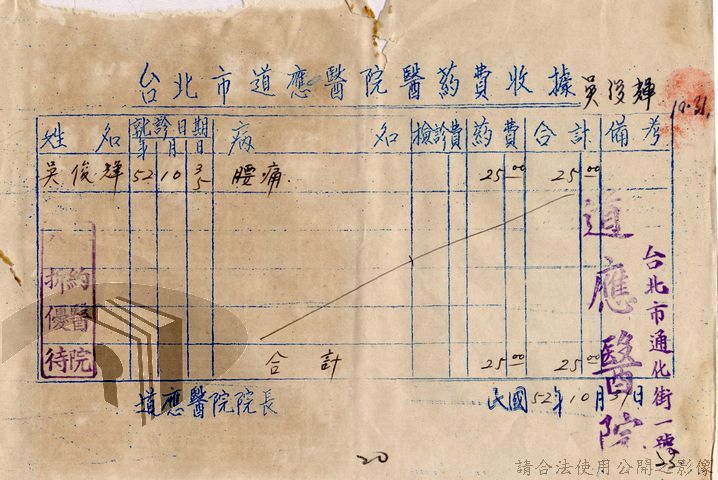 台北市道應醫院醫葯費收據
吳俊輝
10.31.
姓名 就診日期 年 月 日 病名 檢診費 葯費 合計 備考
吳俊輝 52 10 腰痛. 25 00 25 00
合計 25 00 25 00
道應醫院院長
民國52年10月31日
約醫院
折優待
道應醫院
台北市通化街一號
20
請合法使用公開之影像